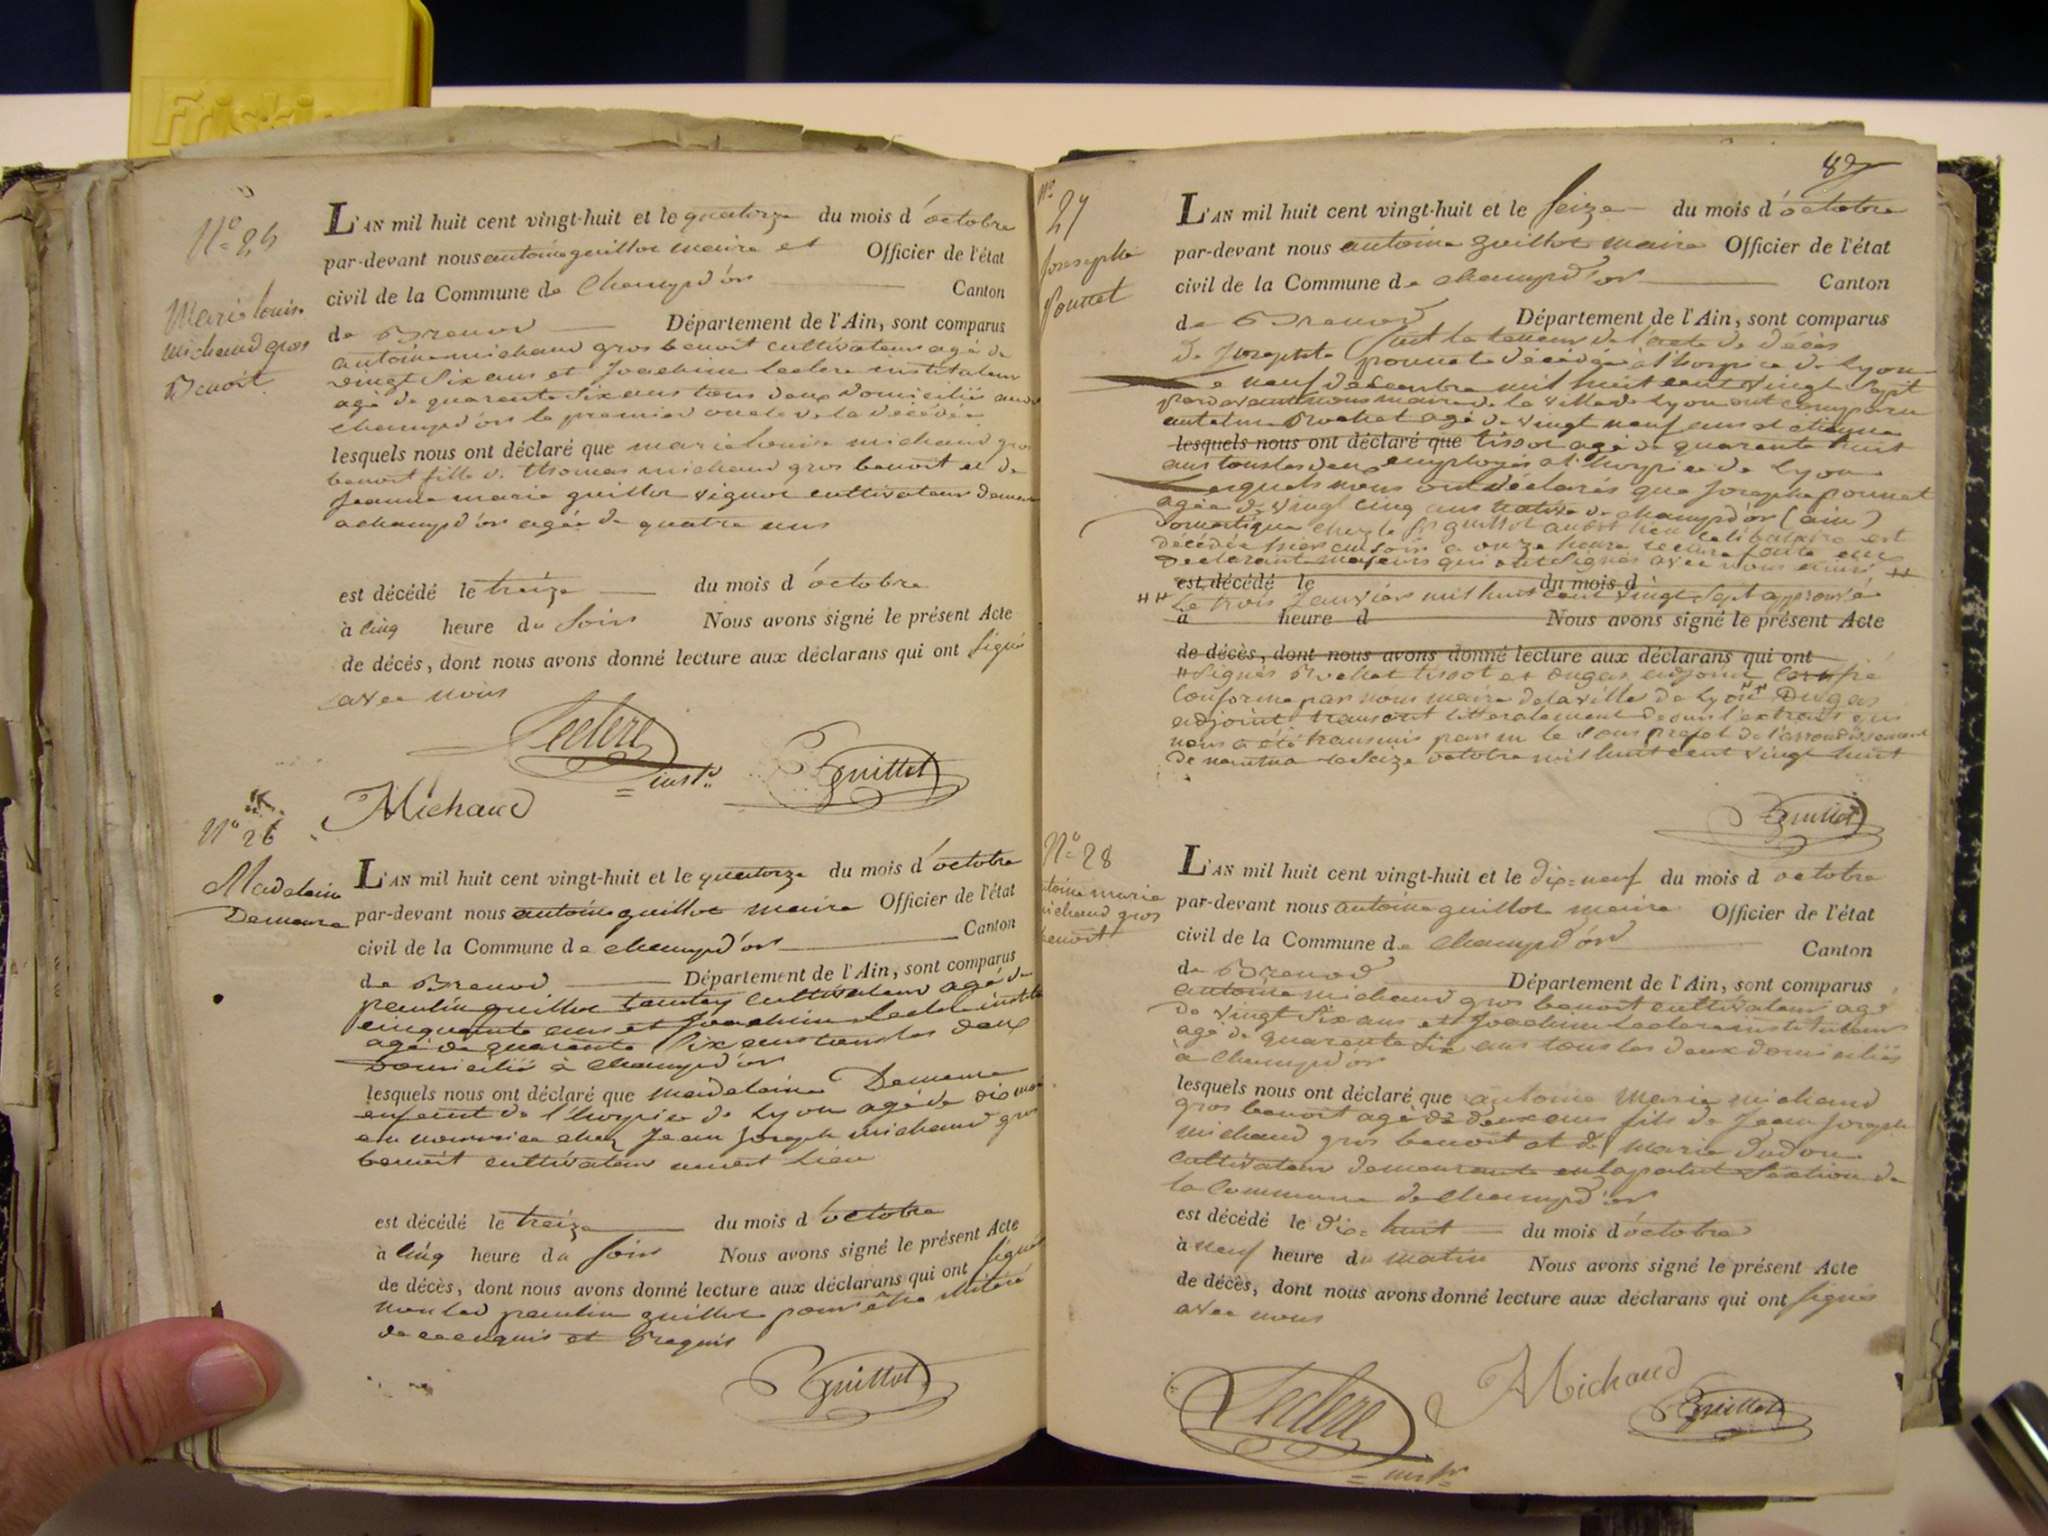 Friskies
N° 25
Marie louise
michaud gros
Benoit
L'AN mil huit cent vingt-huit et le quatorze du mois d'octobre
par-devant nous antoine guillot maire et Officier de l'état
civil de la Commune de Champd'or Canton
de Brenod Département de l'Ain, sont comparus
antoine michaud gros benoit cultivateur agé de
vingt six ans et Joachim Leclere instituteur
agé de quarante six ans tous deux domiciliés audit
champd'or le premier oncle de la décédée
lesquels nous ont déclaré que marie Louise michaud gros
benoit fille de thomas michaud gros benoit et de
Jeanne marie guillot vignor cultivateur demeur
a champd'or agée de quatre ans
est décédé le treize du mois d'octobre
à cinq heure du soir Nous avons signé le présent Acte
de décés, dont nous avons donné lecture aux déclarans qui ont signé
avec nous
Leclere
inst.r
Guillot
Michaud
N° 26
Madelaine
Demeure
L'AN mil huit cent vingt-huit et le quatorze du mois d'octobre
par-devant nous antoine guillot maire Officier de l'état
civil de la Commune de Champd'or Canton
de Brenod Département de l'Ain, sont comparus
paulin guillot cultivateur agé de
cinquante ans et Joachim Leclere instit
agé de quarante six ans tous les deux
Domicilié à Champd'or
lesquels nous ont déclaré que madelaine Demeure
enfant de l'hospice de Lyon agé de dix moi
en nourrice chez Jean Joseph michaud gros
benoit cultivateur au lieu
est décédé le treize du mois d'octobre
à cinq heure du soir Nous avons signé le présent Acte
de décés, dont nous avons donné lecture aux déclarans qui ont signé
non led paulin guillot pour être illiteré
de ce enquis et Requis
Guillot
82
N°
27
Josephe
Pounet
L'AN mil huit cent vingt-huit et le seize du mois d'octobre
par-devant nous antoine guillot maire Officier de l'état
civil de la Commune de Champd'or Canton
de Brenod Département de l'Ain, sont comparus
Suit la teneur de l'acte de décès
De Josephte pounet décédée à l'hospice de Lyon
Le neuf décembre mil huit cent vingt sept
pardevant nous maire de la ville de Lyon ont comparu
antelme Rochet agé de vingt neuf ans et etienne
lesquels nous ont déclaré que tissot agé de quarante huit
ans tous les deux employés a l'hospice de Lyon
Lesquels nous ont déclarés que Josephe pounet
agée de vingt cinq ans native de champd'or (ain)
Domestique chez le Sr guillot celibataire est
décédée hier au soir a onze heure lecture faite aux
declarant majeurs qui ont signés avec nous ainsi #
est décédé le du mois d
## Le trois Janvier mil huit cent vingt sept approuvé
à heure d Nous avons signé le présent Acte
de décès, dont nous avons donné lecture aux déclarans qui ont
# Signés Rochet tissot et Dugas adjoint Certifié
Conforme par nous maire de la ville de Lyon ## Dugas
adjoint transcrit litteralement de sur l'extrait qui
nous a été transmis par m le sous prefet de l'arrondissement
de nantua le seize octobre mil huit cent vingt huit
Guillot
N° 28
antoine marie
michaud gros
benoit
L'AN mil huit cent vingt-huit et le dix-neuf du mois d octobre
par-devant nous antoine guillot maire Officier de l'état
civil de la Commune de Champd'or Canton
de Brenod Département de l'Ain, sont comparus
antoine michaud gros benoit cultivateur agé
De vingt six ans et Joachim Leclere instituteur
agé de quarante six ans tous les deux domiciliés
à Champd'or
lesquels nous ont déclaré que antoine Marie michaud
gros benoit agé de deux ans fils de Jean Joseph
michaud gros benoit et de marie Dudou
cultivateur demeurante section de
la Commune de Champd'or
est décédé le dix-huit du mois d'octobre
à neuf heure du matin Nous avons signé le présent Acte
de décès, dont nous avons donné lecture aux déclarans qui ont signés
avec nous
Leclere
instr
Michaud
Guillot